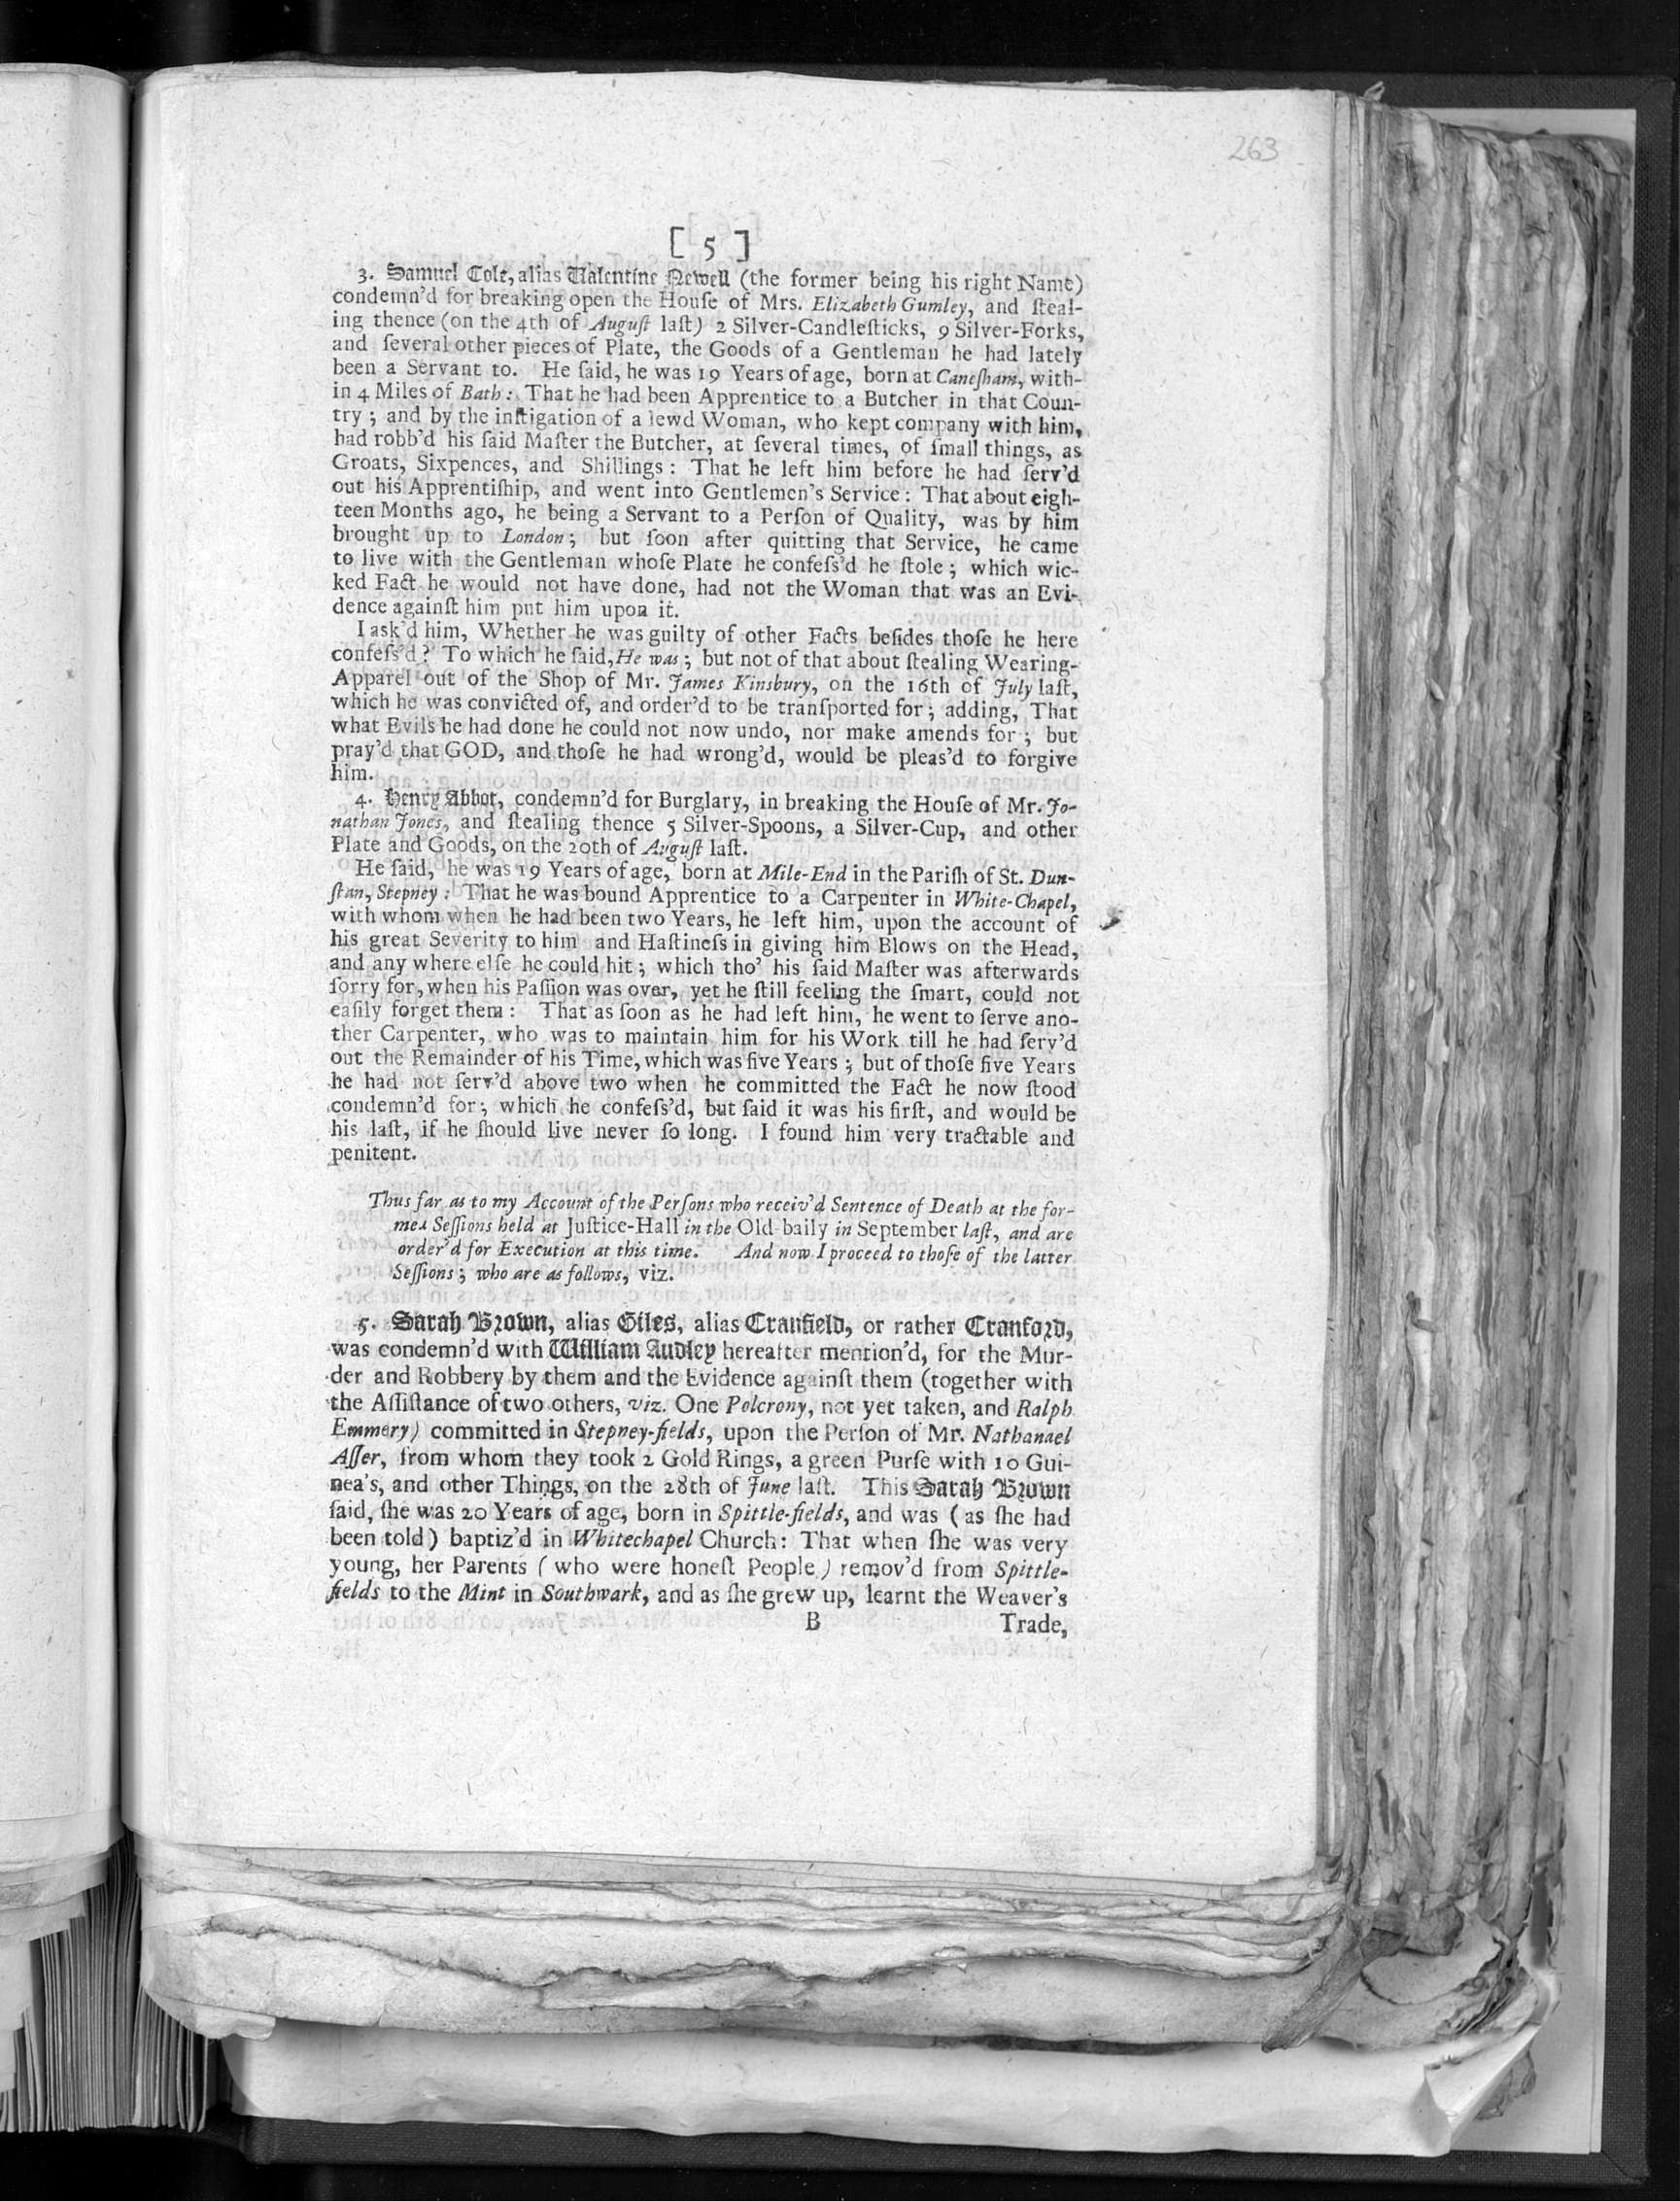 263
[ 5 ]
3. Samuel Cole, alias Valentine Newell (the former being his right Name)
condemn'd for breaking open the Houſe of Mrs. Elizabeth Gumley, and ſteal-
ing thence (on the 4th of Auguſt laſt) 2 Silver-Candleſticks, 9 Silver-Forks,
and ſeveral other pieces of Plate, the Goods of a Gentleman he had lately
been a Servant to. He ſaid, he was 19 Years of age, born at Caneſham, with-
in 4 Miles of Bath: That he had been Apprentice to a Butcher in that Coun-
try; and by the inſtigation of a lewd Woman, who kept company with him,
had robb'd his ſaid Maſter the Butcher, at ſeveral times, of ſmall things, as
Groats, Sixpences, and Shillings: That he left him before he had ſerv'd
out his Apprentiſhip, and went into Gentlemen's Service: That about eigh-
teen Months ago, he being a Servant to a Perſon of Quality, was by him
brought up to London; but ſoon after quitting that Service, he came
to live with the Gentleman whoſe Plate he confeſs'd he ſtole; which wic-
ked Fact he would not have done, had not the Woman that was an Evi-
dence againſt him put him upon it.
I ask'd him, Whether he was guilty of other Facts beſides thoſe he here
confeſs'd? To which he ſaid, He was; but not of that about ſtealing Wearing-
Apparel out of the Shop of Mr. James Kinsbury, on the 16th of July laſt,
which he was convicted of, and order'd to be tranſported for; adding, That
what Evils he had done he could not now undo, nor make amends for; but
pray'd that GOD, and thoſe he had wrong'd, would be pleas'd to forgive
him.
4. Henry Abbot, condemn'd for Burglary, in breaking the Houſe of Mr. Jo-
nathan Jones, and ſtealing thence 5 Silver-Spoons, a Silver-Cup, and other
Plate and Goods, on the 20th of Auguſt laſt.
He ſaid, he was 19 Years of age, born at Mile-End in the Pariſh of St. Dun-
ſtan, Stepney: That he was bound Apprentice to a Carpenter in White-Chapel,
with whom when he had been two Years, he left him, upon the account of
his great Severity to him and Haſtineſs in giving him Blows on the Head,
and any where elſe he could hit; which tho' his ſaid Maſter was afterwards
ſorry for, when his Paſſion was over, yet he ſtill feeling the ſmart, could not
eaſily forget them: That as ſoon as he had left him, he went to ſerve ano-
ther Carpenter, who was to maintain him for his Work till he had ſerv'd
out the Remainder of his Time, which was five Years; but of thoſe five Years
he had not ſerv'd above two when he committed the Fact he now ſtood
condemn'd for; which he confeſs'd, but ſaid it was his firſt, and would be
his laſt, if he ſhould live never ſo long. I found him very tractable and
penitent.
Thus far as to my Account of the Perſons who receiv'd Sentence of Death at the for-
mer Seſſions held at Juſtice-Hall in the Old-baily in September laſt, and are
order'd for Execution at this time. And now I proceed to thoſe of the latter
Seſſions; who are as follows, viz.
5. Sarah Brown, alias Giles, alias Cranfield, or rather Cranford,
was condemn'd with William Audley hereafter mention'd, for the Mur-
der and Robbery by them and the Evidence againſt them (together with
the Aſſiſtance of two others, viz. One Polcrony, not yet taken, and Ralph
Emmery) committed in Stepney-fields, upon the Perſon of Mr. Nathanael
Aſſer, from whom they took 2 Gold Rings, a green Purſe with 10 Gui-
nea's, and other Things, on the 28th of June laſt. This Sarah Brown
ſaid, ſhe was 20 Years of age, born in Spittle-fields, and was (as ſhe had
been told) baptiz'd in Whitechapel Church: That when ſhe was very
young, her Parents (who were honeſt People) remov'd from Spittle-
fields to the Mint in Southwark, and as ſhe grew up, learnt the Weaver's
B Trade,